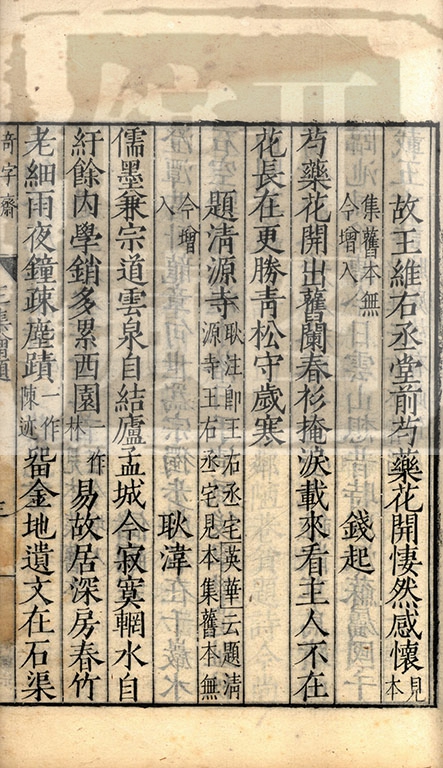 故王維右丞堂前芍藥花開悽然感懷見本
集舊本無今增入 錢起
芍藥花開出舊闌春衫掩淚載來看主人不在
花長在更勝青松守歲寒
題清源寺耿注即王右丞宅英華云題清源寺王右丞宅見本集舊本無
今增入 耿湋
儒墨兼宗道雲泉自結廬孟城今寂寞輞水自
紆餘內學銷多累西園一作林易故居深房春竹
老細雨夜鐘疎塵蹟一作陳迹畱金地遺文在石渠
奇字齋